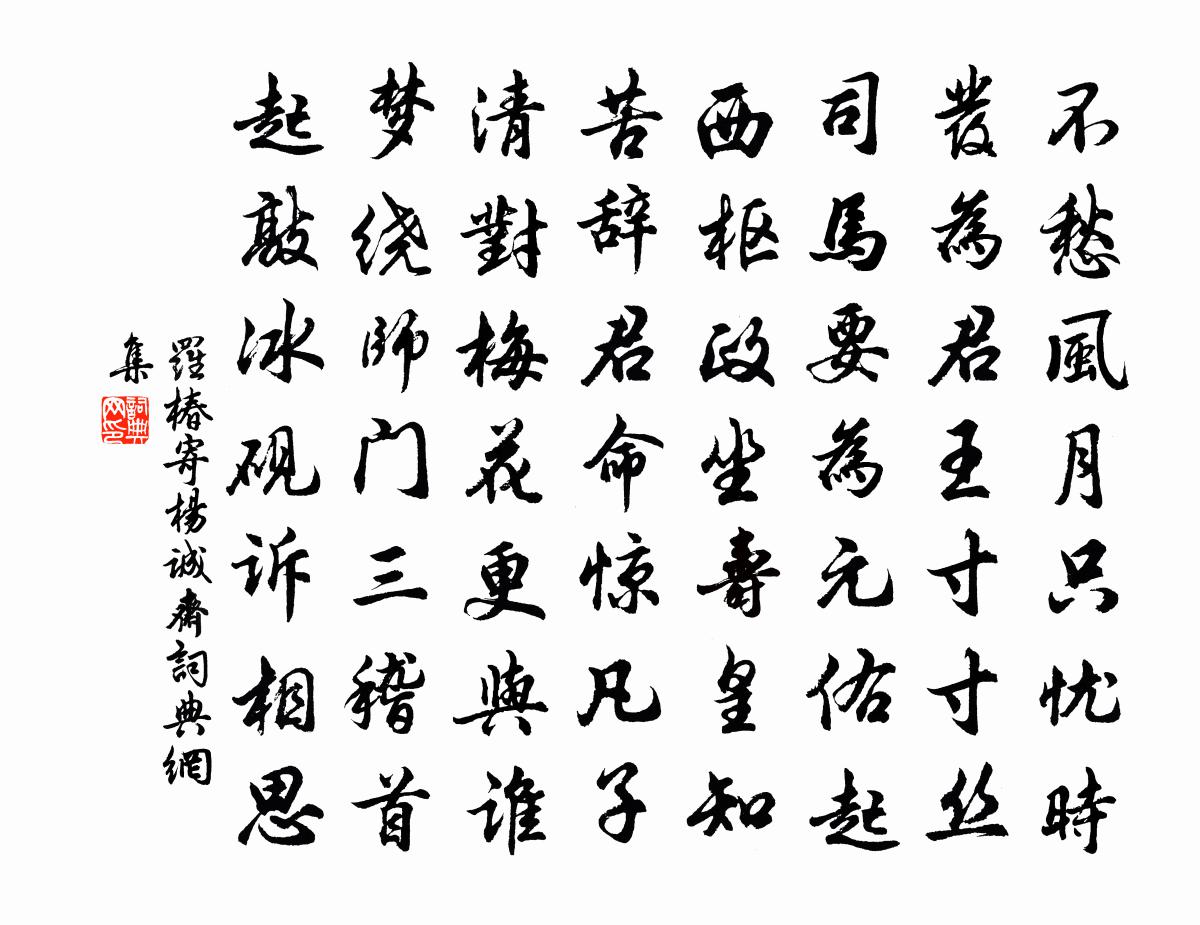 不愁風月只忧時
發為君王寸寸丝
司馬要為元佑起
西枢政坐壽皇知
苦辞君命惊凡子
清對梅花更與谁
梦绕師门三稽首
起敲冰砚诉相思
羅椿寄楊诚齋詞典網
集
詞典網印